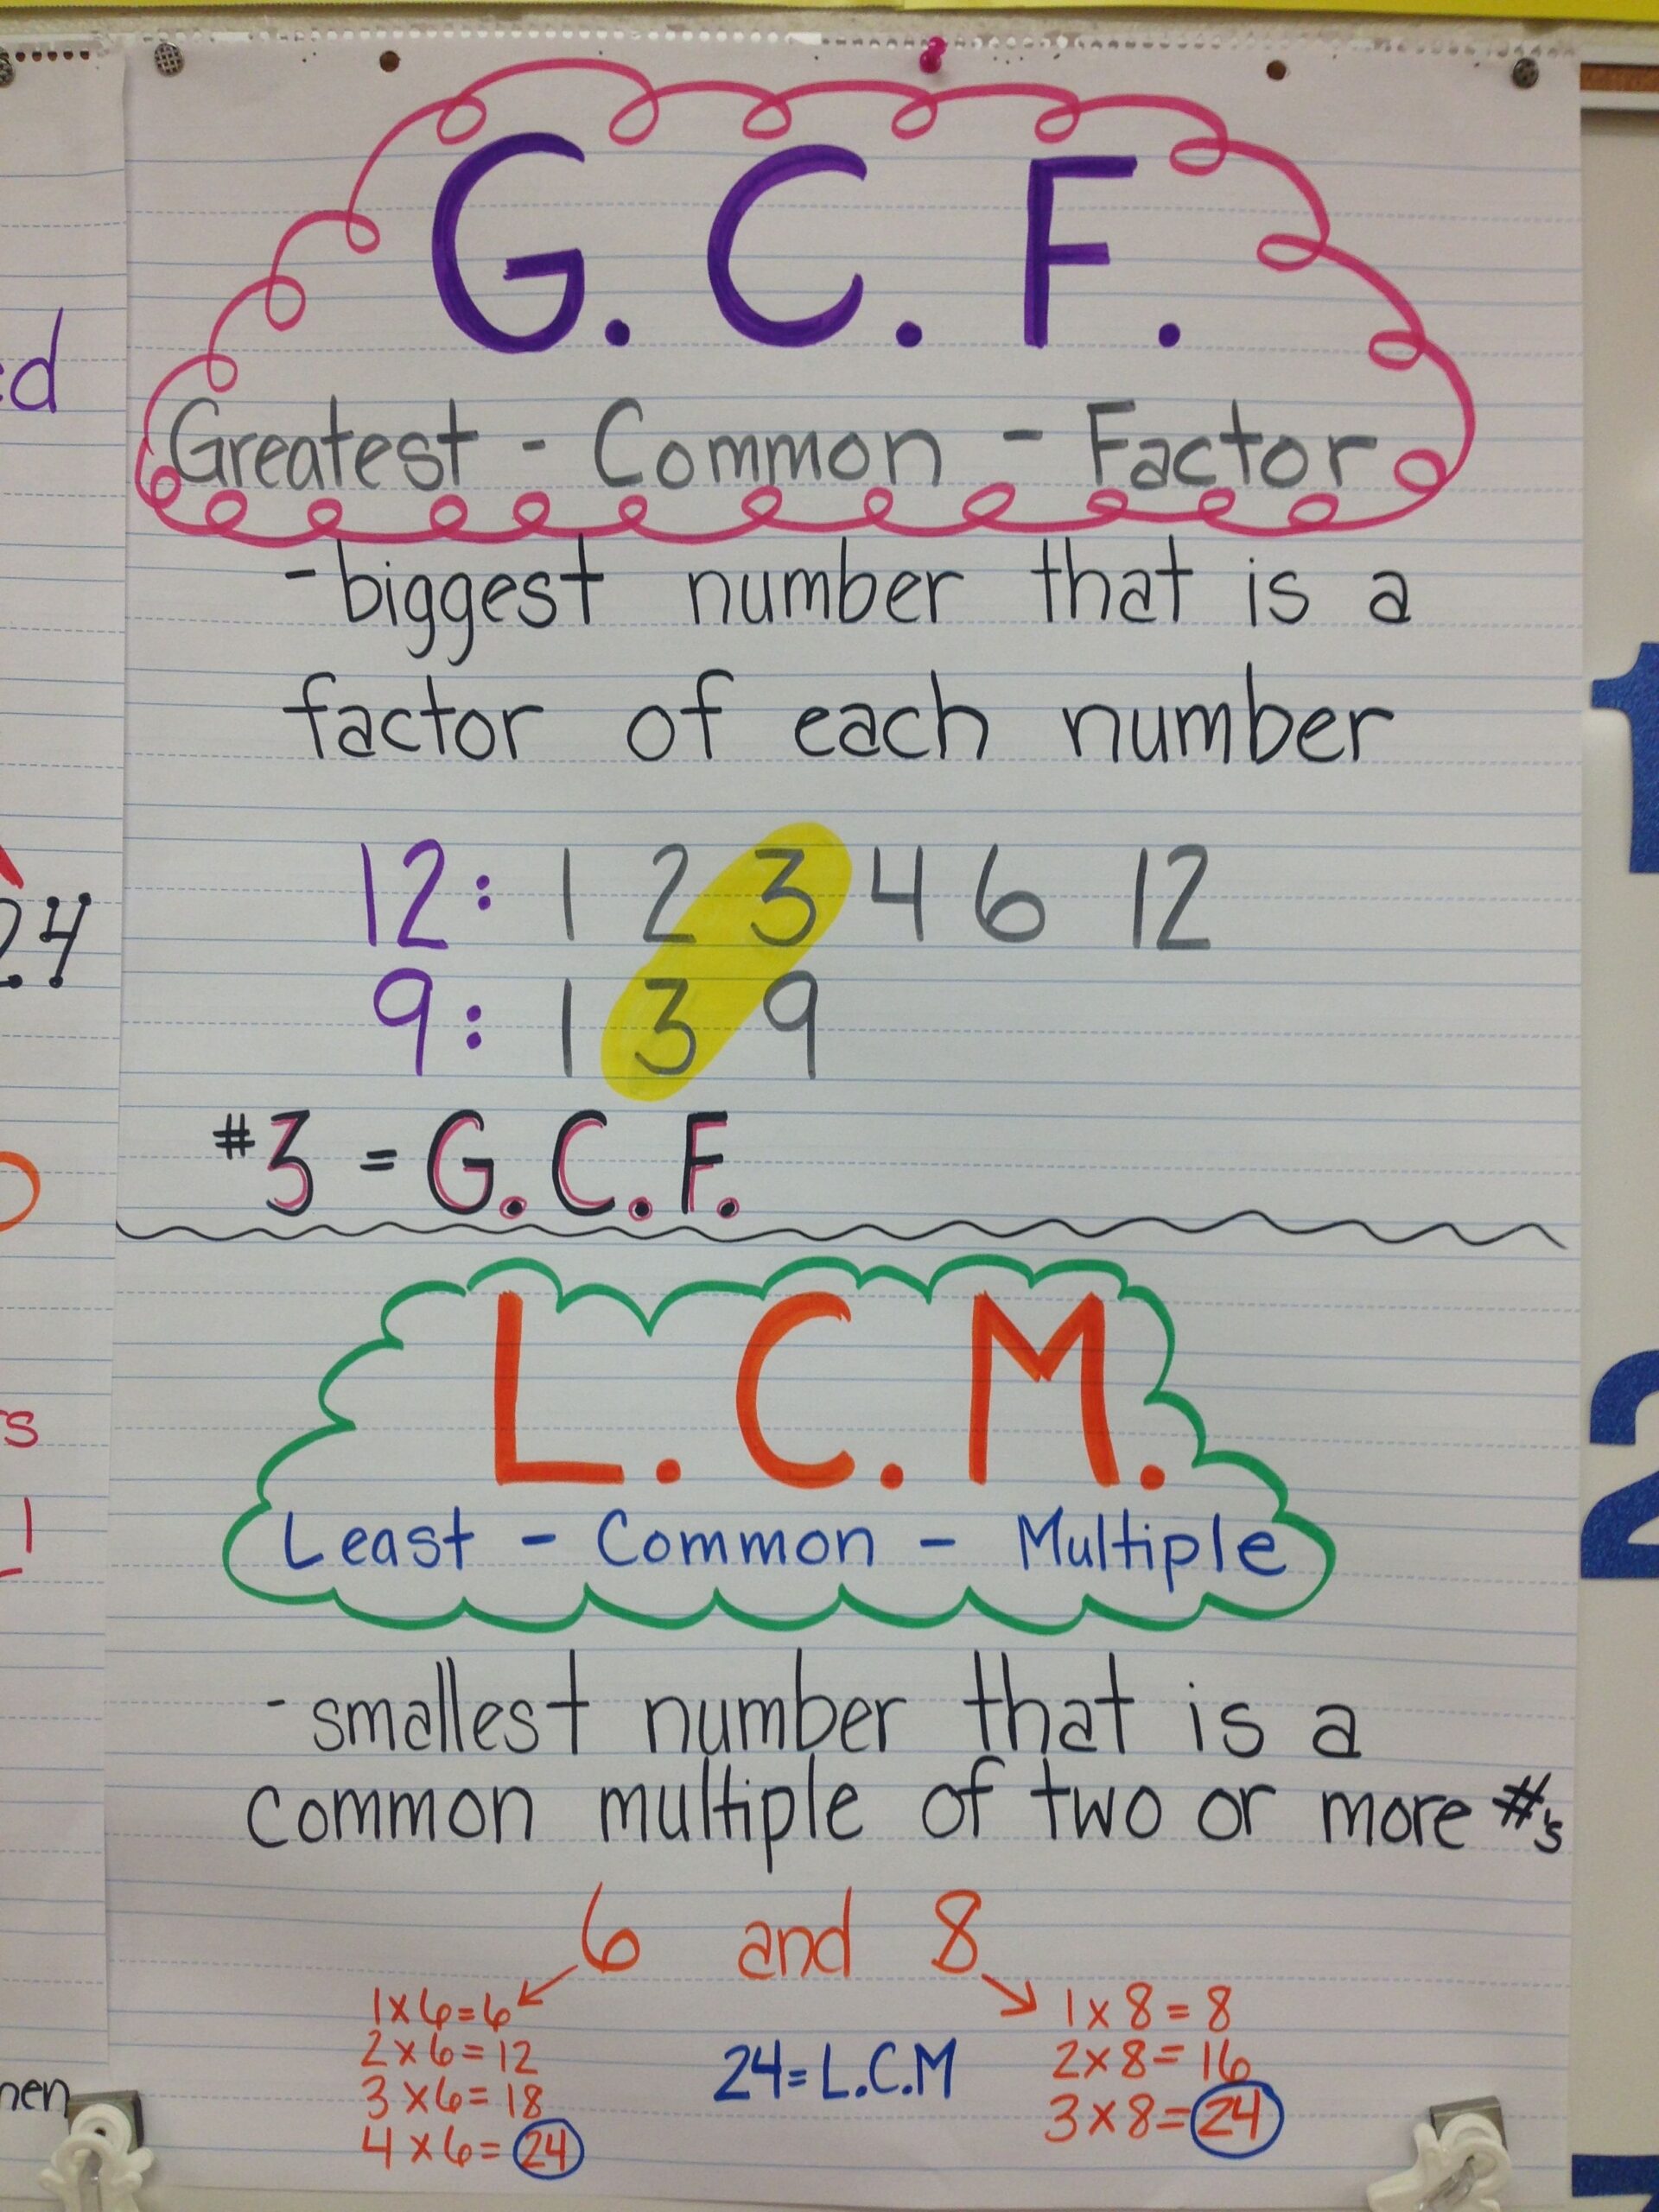 G. C. F.
Greatest - Common - Factor
-biggest number that is a
factor of each number
12: 1 2 3 4 6 12
9: 1 3 9
#3 = G.C.F.
L.C.M.
Least - Common - Multiple
-smallest number that is a
common multiple of two or more #'s
6 and 8
1x6=6
2x6=12
3x6=18
4x6=24
24=L.C.M
1x8=8
2x8=16
3x8=24
1
2